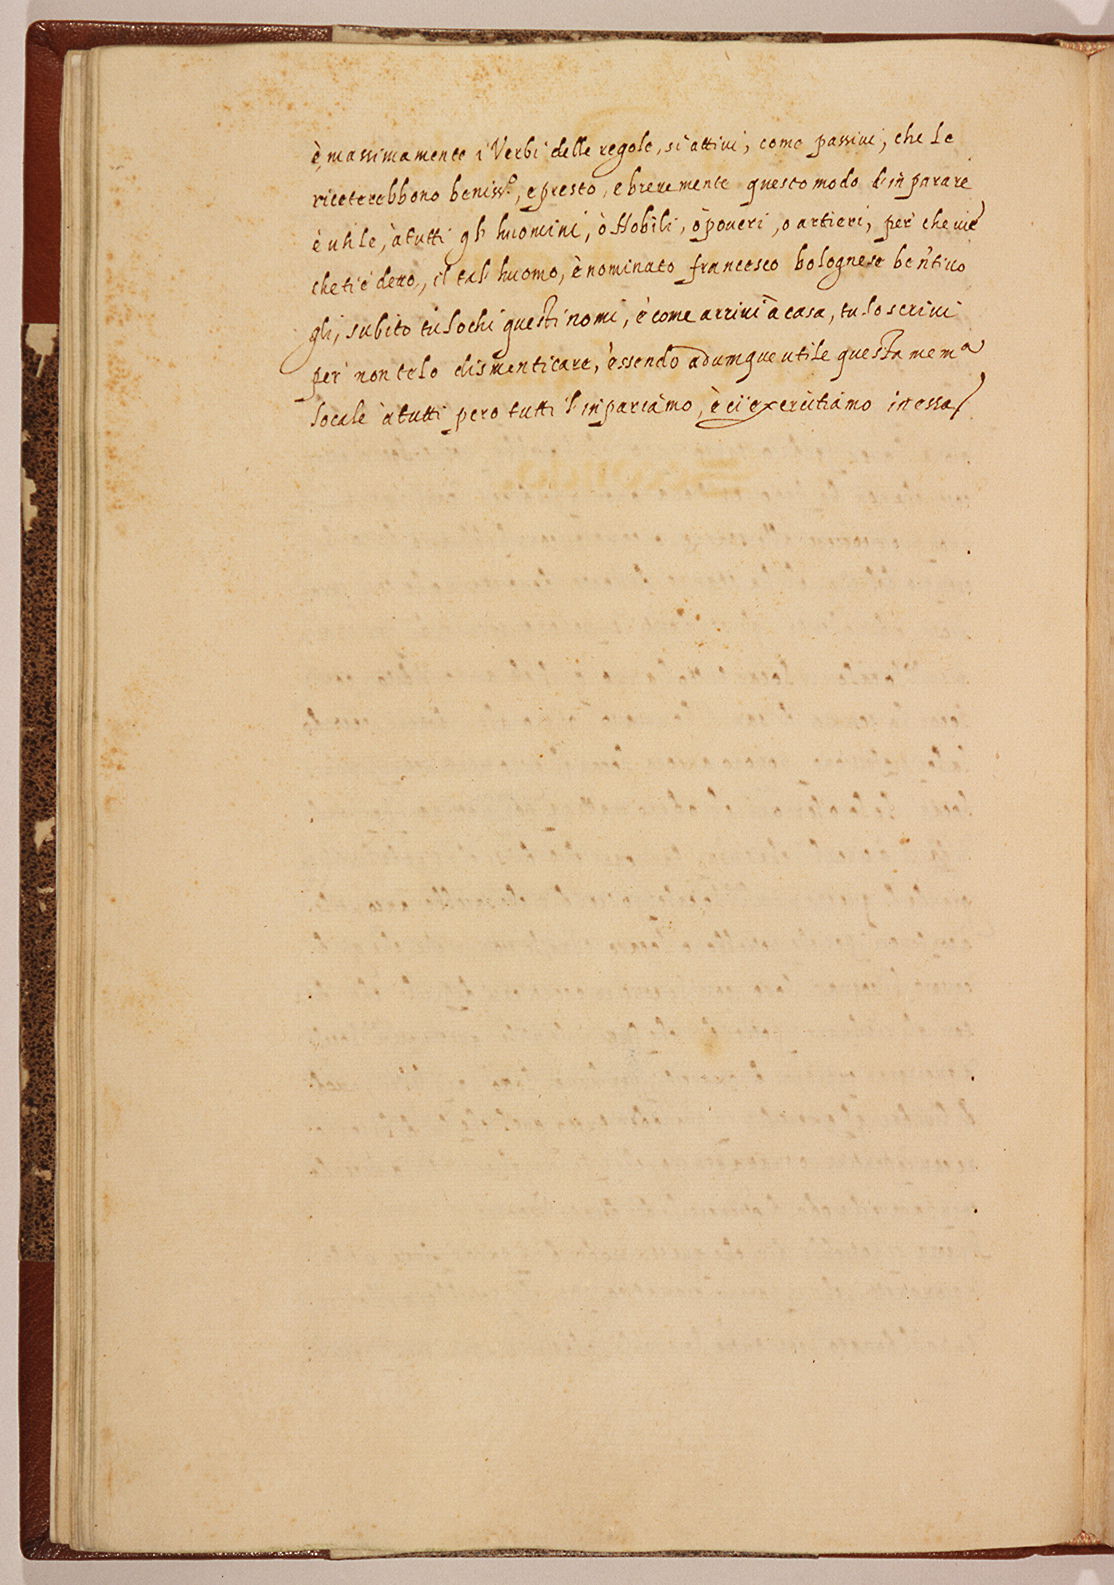 è massimamente i Verbi delle regole, si attiui, come passiui, che le
riceterebbono beniss.º, e presto, e breuemente questo modo d'inparare
è utile, à tutti gli huomini, ò Nobili, ò poueri, o artieri, per che uie
che ti è detto, il tal huomo, è nominato francesco bolognese bentiuo
gli, subito tu lochi questi nomi, è come arriui à casa, tu lo scriui
per non telo dismenticare, essendo adumque utile questa mem.ª
locale à tutti pero tutti l'inpariamo, è ci exercitiamo in essa